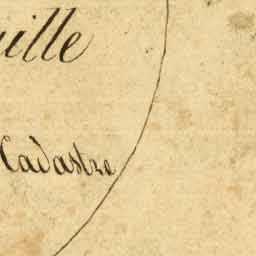 uille
Cadastre